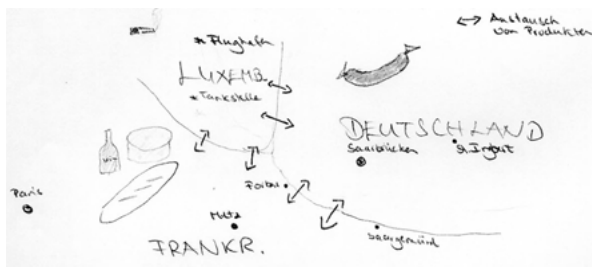 Austausch
von Produkten
* Flughafen
LUXEMB.
* Tankstelle
DEUTSCHLAND
Saarbrücken
St. Ingbert
Paris
Forbac
Metz
Saargemünd
FRANKR.